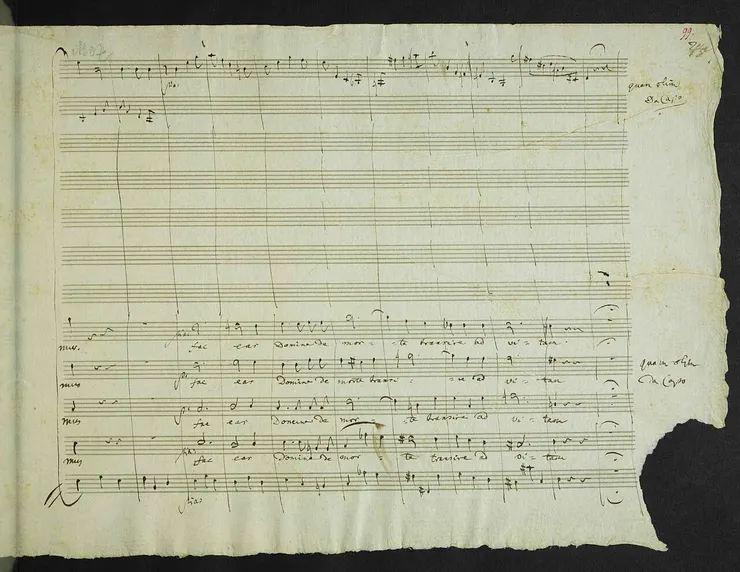 99.
pia:
quam olim
Da Capo
mus. fac eas Domine de mor - te transire ad vi = tam.
quam olim
da Capo
mus fac eas Domine de morte transi - re ad vi = tam
mus fac eas Domine de mor - te transire ad vi = tam
mus fac eas Domine de mor - te transire ad vi = tam
pia: